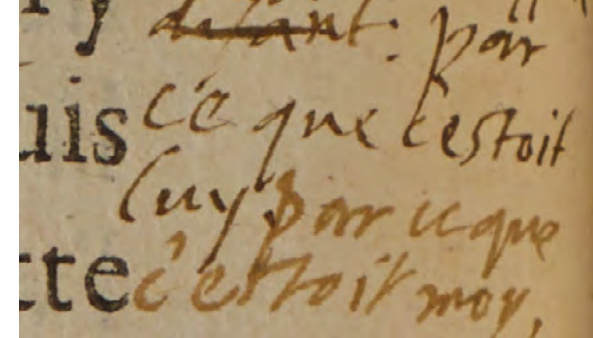 y disant: par
uis ce que c'estoit
luy par ce que
tte c'estoit moy.